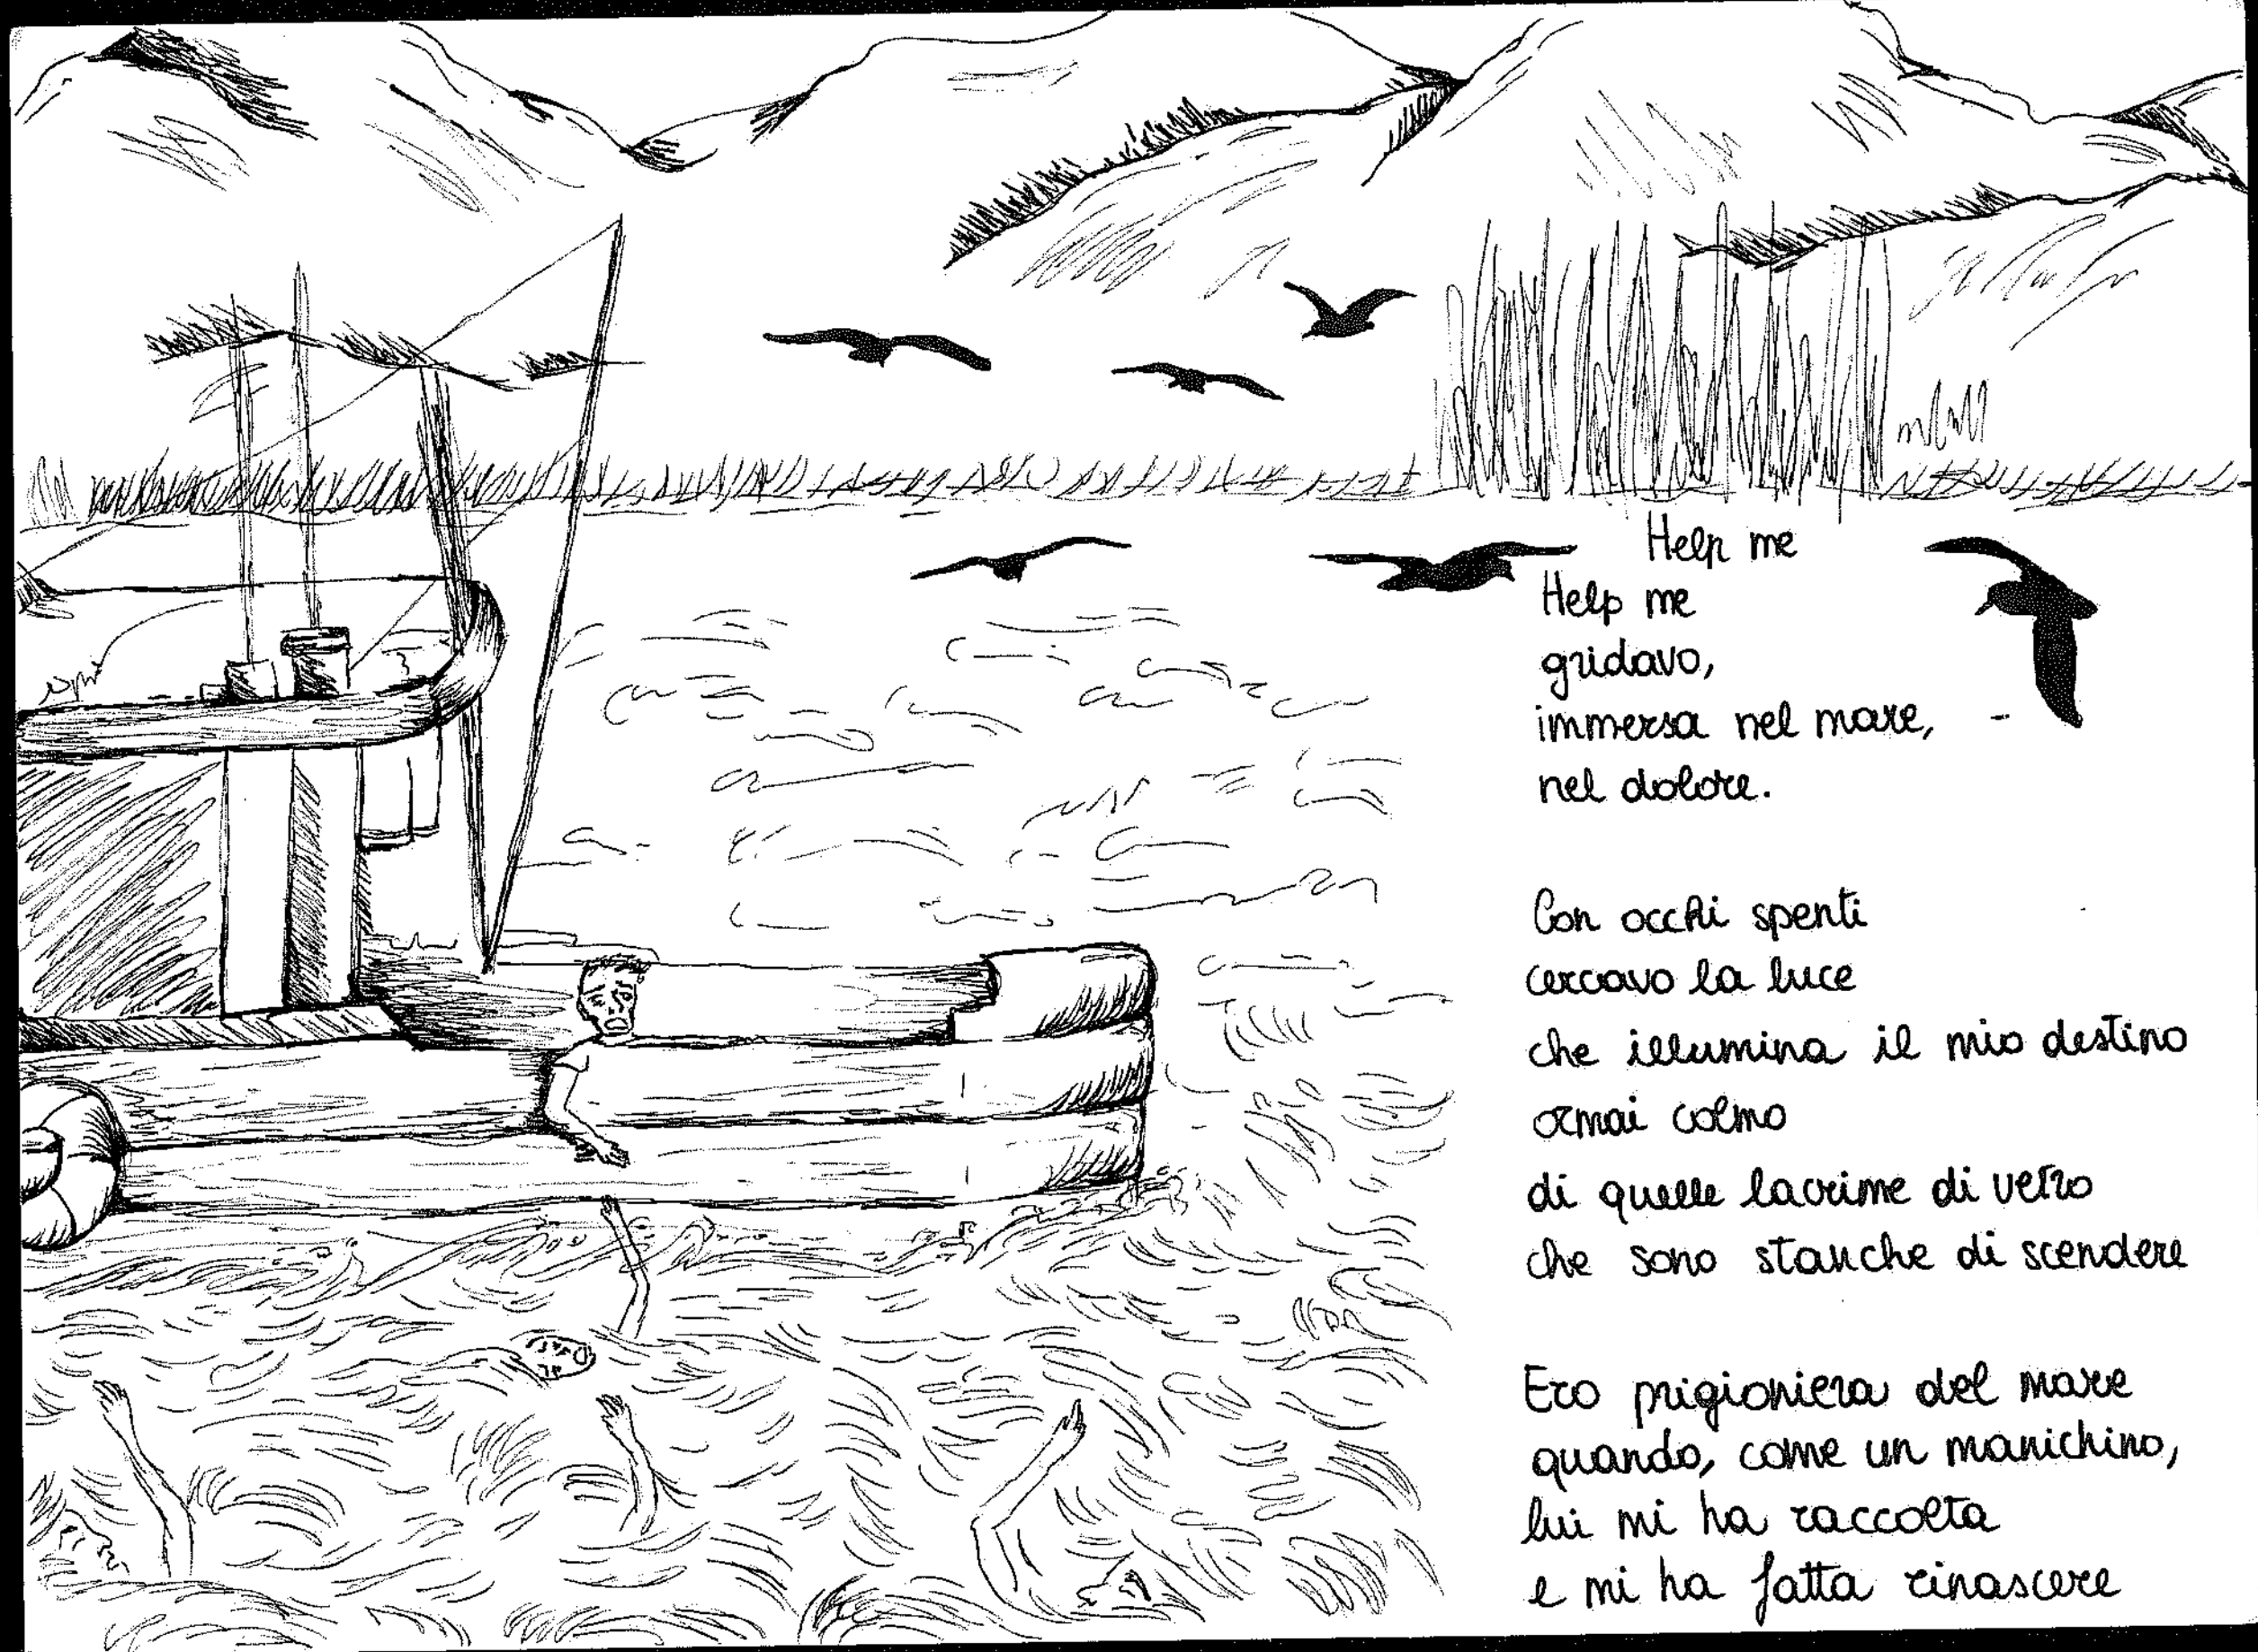 Help me
Help me
gridavo,
immersa nel mare,
nel dolore.
Con occhi spenti
cercavo la luce
che illumina il mio destino
ormai colmo
di quelle lacrime di vetro
che sono stanche di scendere
Ero prigioniera del mare
quando, come un manichino,
lui mi ha raccolta
e mi ha fatta rinascere